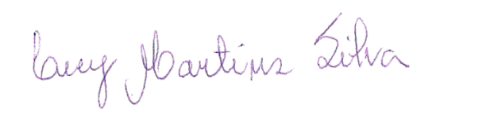 Lucy Martins Silva